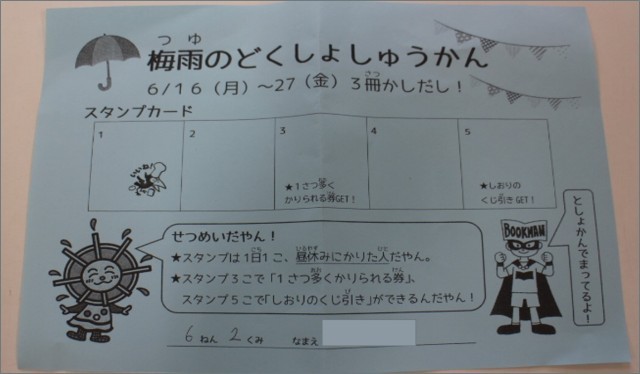 つゆ
梅雨のどくしょしゅうかん
さつ
6/16(月)~27(金)3冊かしだし!
スタンプカード
1 2 3 4 5
いいね!
★1さつ多く
かりられる券GET!
★しおりの
くじ引きGET!
せつめいだやん!
★スタンプは1日1こ、昼休みにかりた人だやん。
★スタンプ3こで「1さつ多くかりられる券」、
スタンプ5こで「しおりのくじ引き」ができるんだやん!
BOOKMAN
としょかんでまってるよ!
6ねん2くみ なまえ